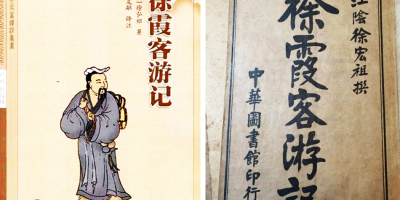 徐霞客游记
徐弘祖 著
江陰徐宏祖撰
徐霞客游記
中華圖書館印行